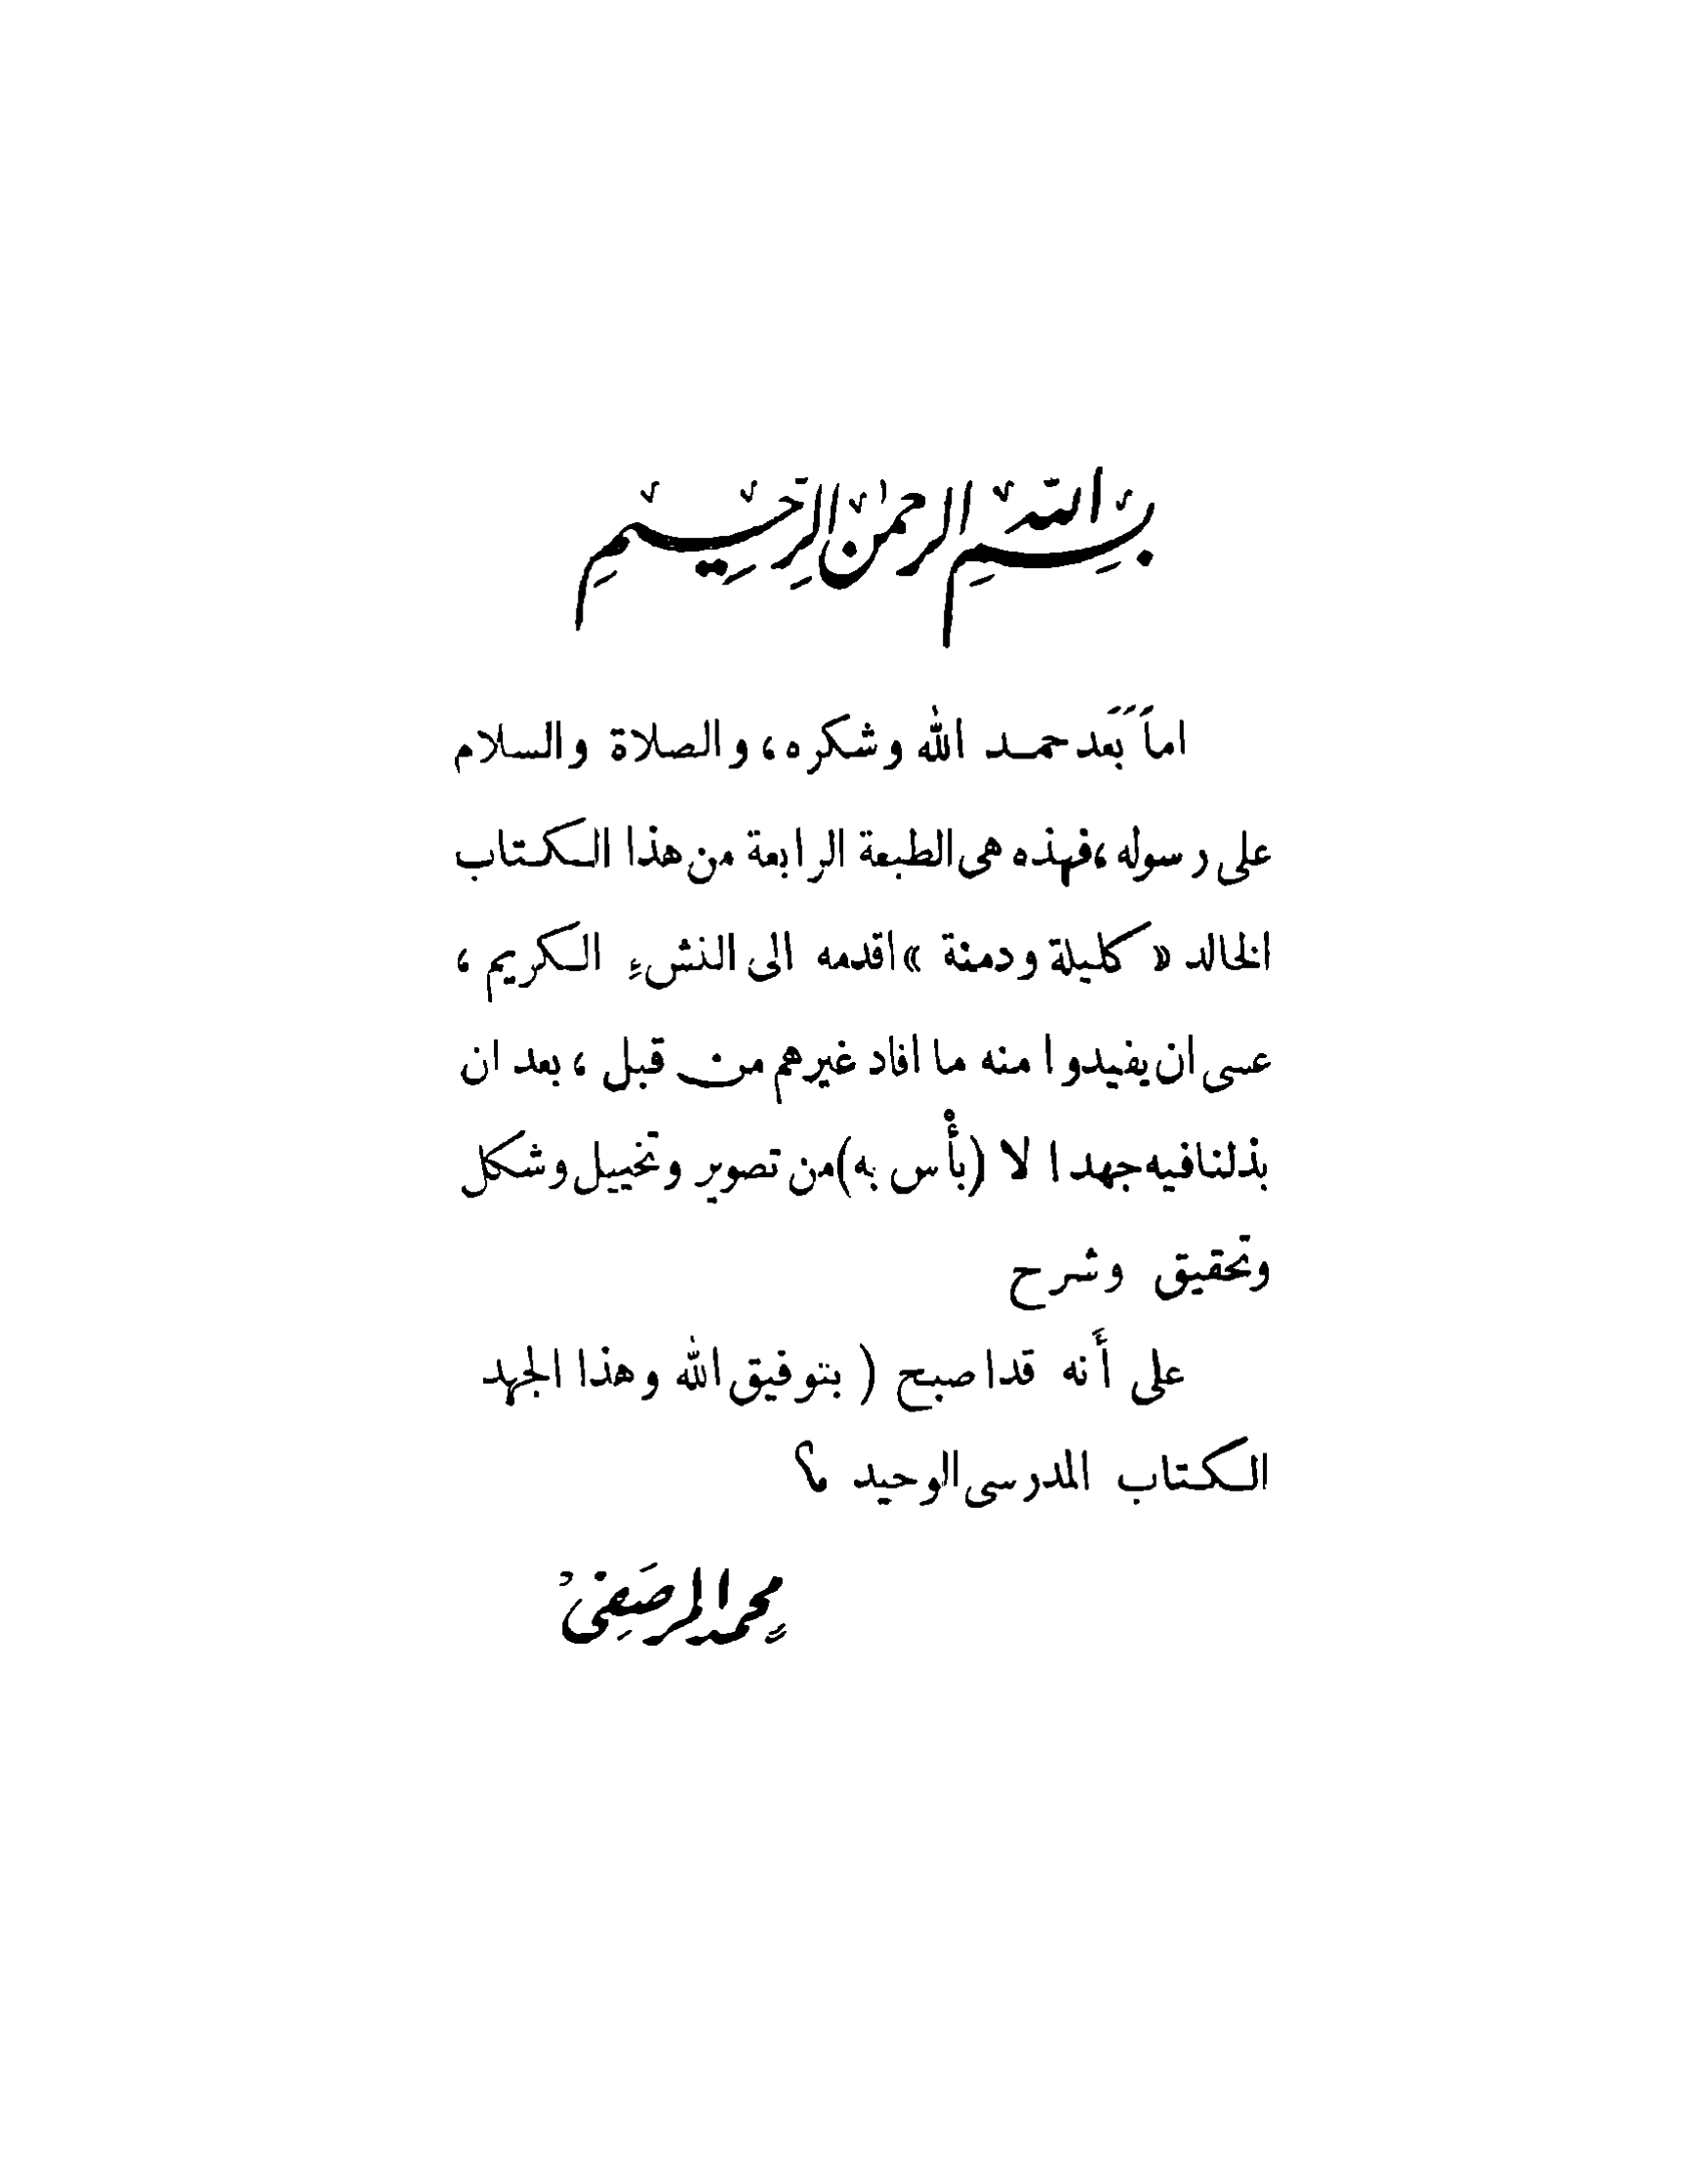 بسم الله الرحمن الرحيم
اماَ بَعَد حمد الله وشكره، والصلاة والسلام
على رسوله، فهذه هى الطبعة الرابعة من هذا الكتاب
الخالد « كليلة ودمنة » اقدمه الى النشءِ الكريم ،
عسى ان يفيدوا منه ما افاد غيرهم من قبل ، بعد ان
بذلنا فيه جهدا لا (بأْس به) من تصوير وتخييل وشكل
وتحقيق وشرح
على أَنه قد اصبح ( بتوفيق الله وهذا الجهد
الكتاب المدرسى الوحيد م؟
محمد المرصفى